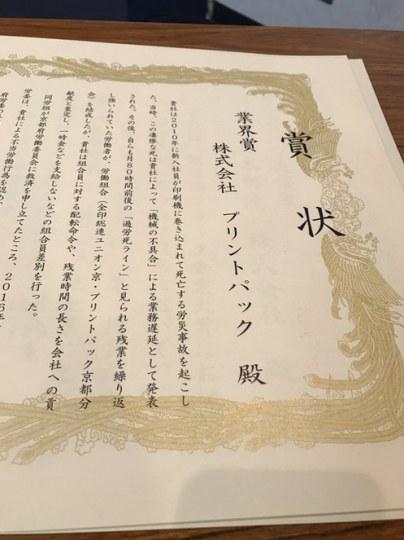 賞状
業界賞
株式会社 プリントパック 殿
貴社は2010年に新入社員が印刷機に巻き込まれて死亡する労災事故を起こし
た。当時、この凄惨な死は貴社によって「機械の不具合」による業務遅延として発表
された。その後、自らも月80時間前後の「過労死ライン」と見られる残業を繰り返
し強いられていた労働者が、労働組合（全印総連ユニオン京・プリントパック京都分
会）を結成したが、貴社は組合員に対する配転命令や、残業時間の長さを会社への貢
献度と査定し、一時金などを支給しないなどの組合員差別を行った。
同労組が京都府労働委員会に救済を申し立てたところ、2016年、
労委は、貴社による不当労働行為を認め、